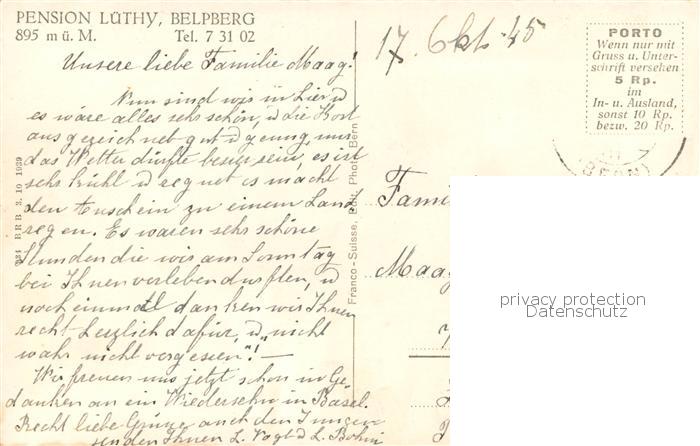 PENSION LÜTHY, BELPBERG
895 m ü. M. Tel. 7 31 02
17. Okt. 45
PORTO
Wenn nur mit
Gruss u. Unter-
schrift versehen
5 Rp.
im
In- u. Ausland,
sonst 10 Rp.
bezw. 20 Rp.
(BERN)
Unsere liebe Familie Maag!
Nun sind wir in hier u
es wäre alles sehr schön, u die Kost
ausgezeichnet gut u genug, nur
das Wetter dürfte besser sein, es ist
sehr kühl u regnet es macht
den Anschein zu einem Land
regen. Es waren sehr schöne
Stunden die wir am Sonntag
bei Ihnen verleben durften, u
noch einmal danken wir Ihnen
recht herzlich dafür, u "nicht
wahr nicht vergessen"! —
Wir freuen uns jetzt schon in Ge-
danken an ein Wiedersehn in Basel.
Recht liebe Grüsse auch den Jungen
senden Ihnen L. Vogt u L. Böhm
BRB 3. 10 1939
Franco-Suisse, Edit. Phot. Bern
Fami
Maag
privacy protection
Datenschutz